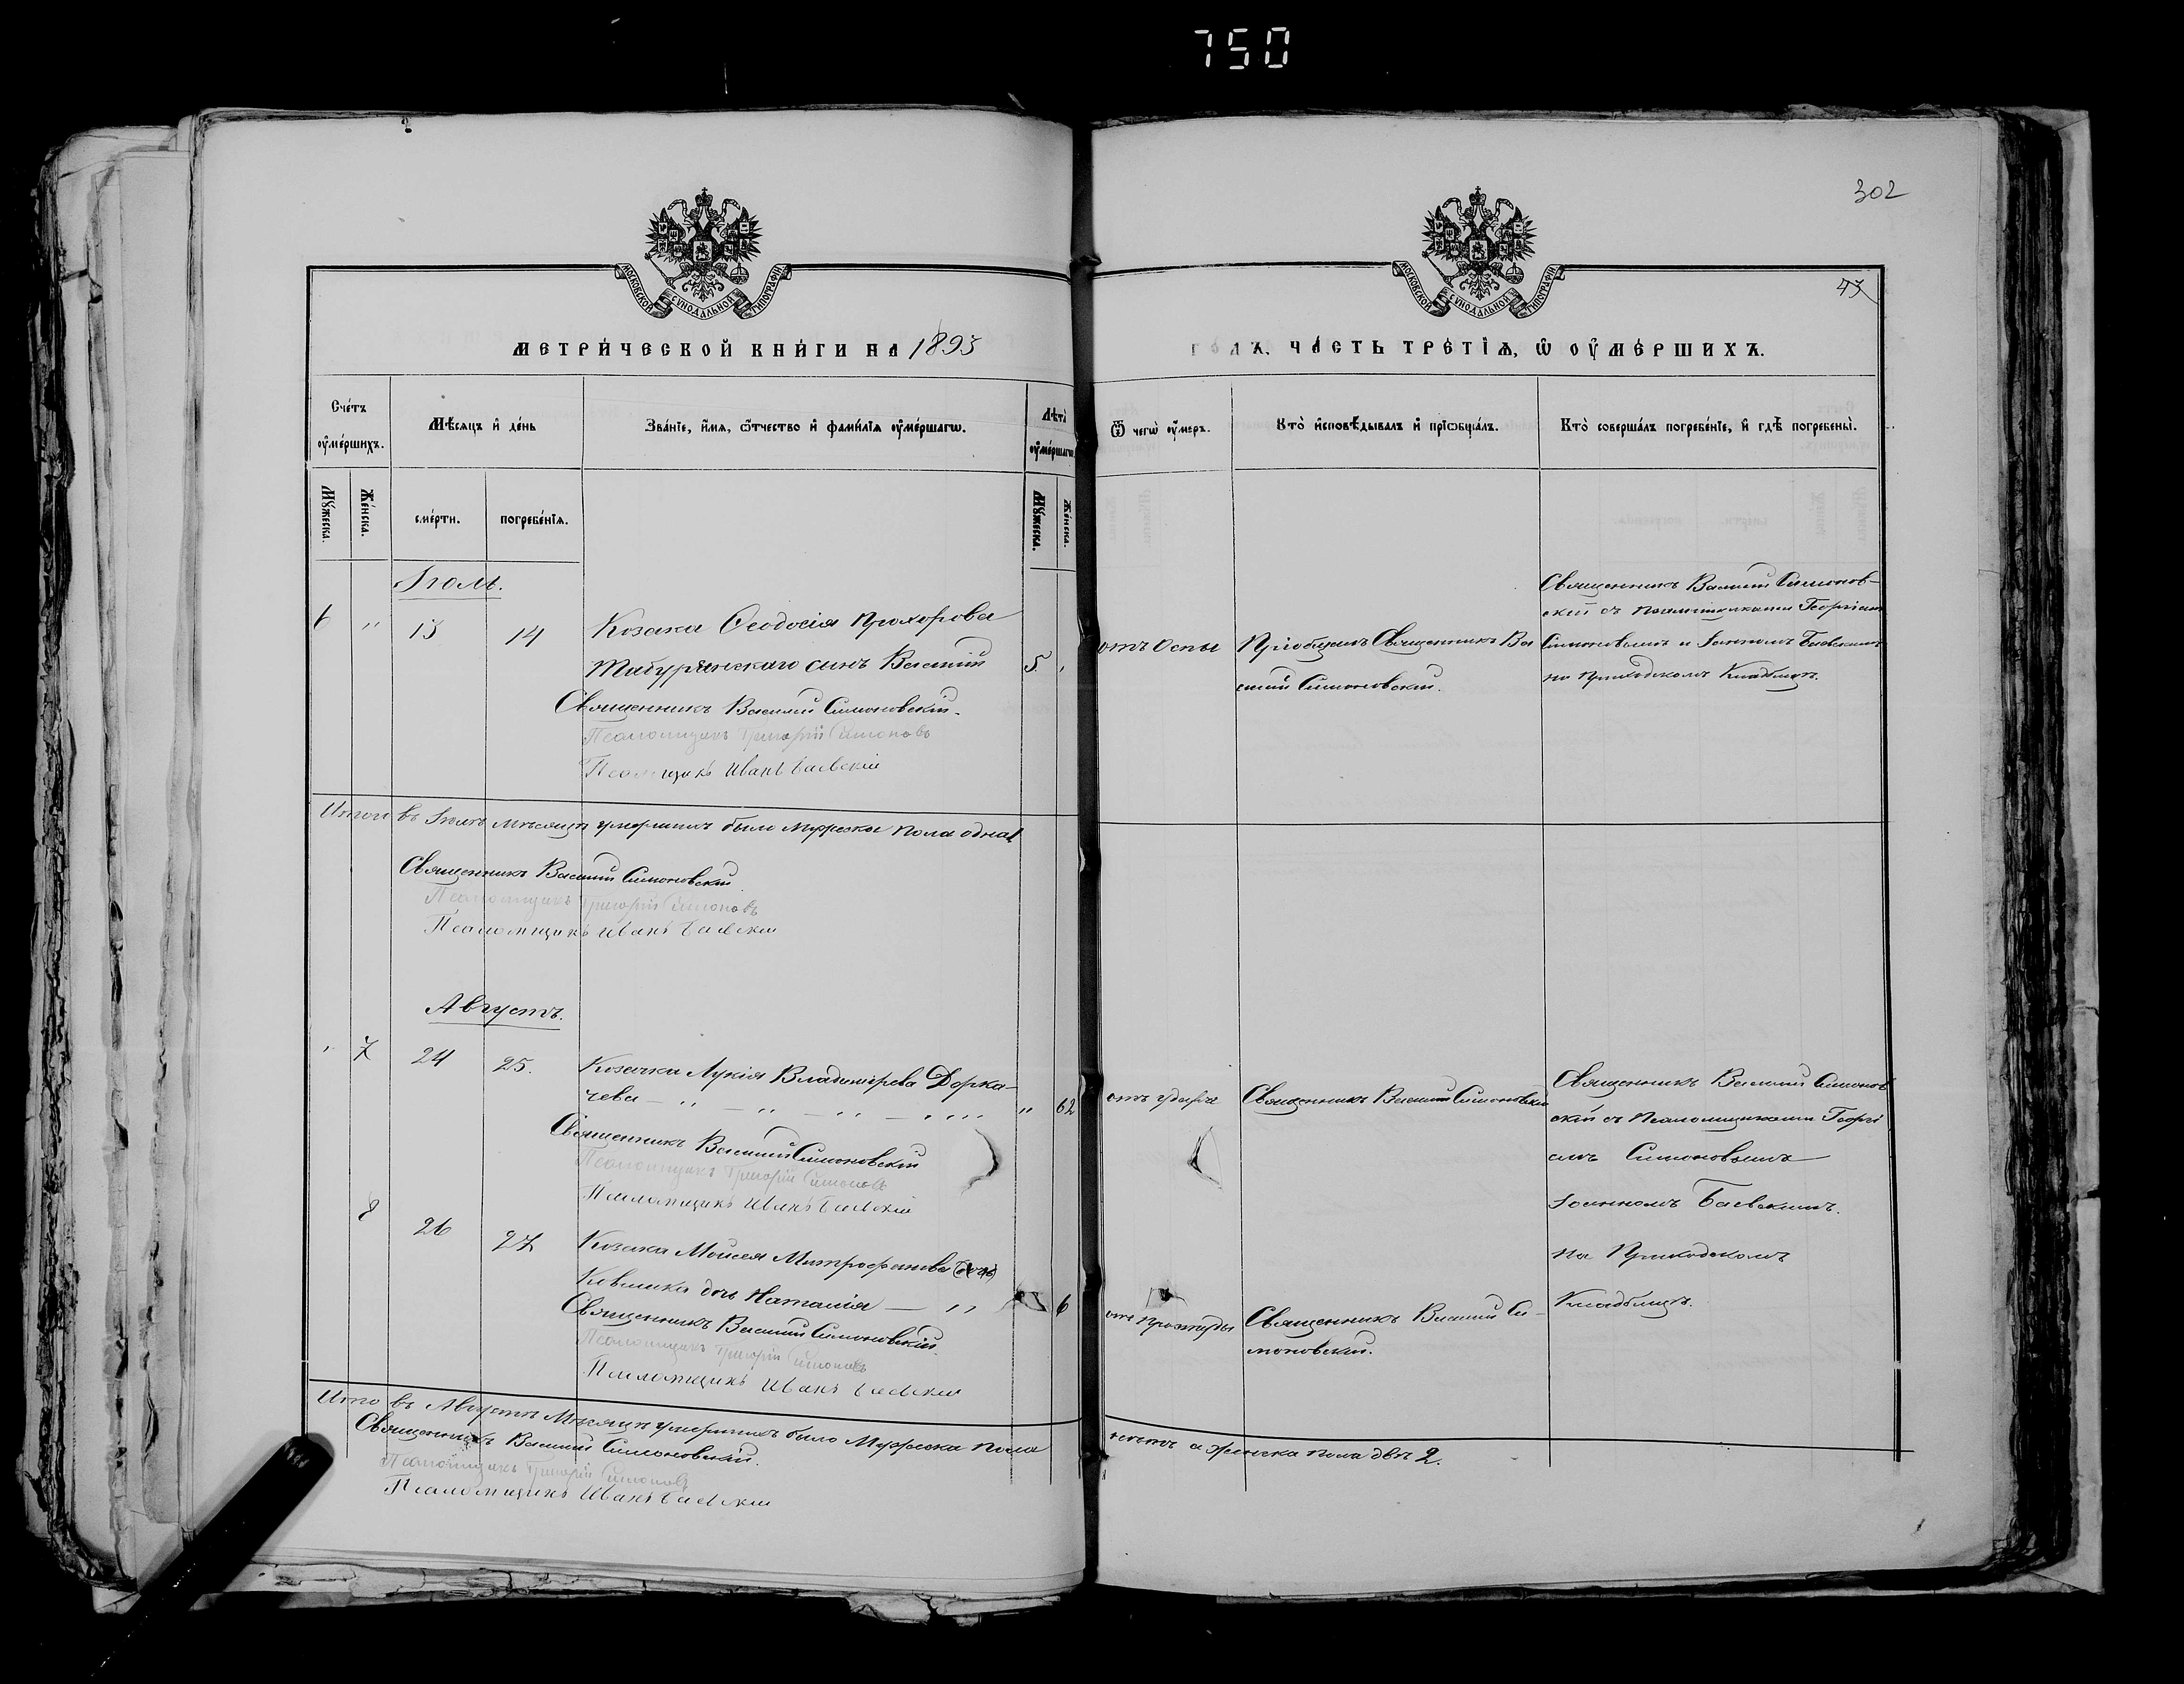 750
302
МОСКОВСКОЙ СУНОДАЛЬНОЙ ТИПОГРАФІИ
МОСКОВСКОЙ СУНОДАЛЬНОЙ ТИПОГРАФІИ
МЕТРИ́ЧЕСКОЙ КНИ́ГИ НА 1893
ГО́ДЪ. ЧА́СТЬ ТРЕ́ТІѦ, Ѡ҆ ОУ҆МЕ́РШИХЪ.
Сче́тъ оу҆ме́ршихъ.
Мѣ́сяцъ и҆ де́нь
Зва́нїе, и҆́мя, ѻ҆́тчество и҆ фами́лїя оу҆ме́ршагѡ.
Лѣ́та оу҆ме́ршагѡ.
Ѿ чегѡ̀ оу҆́меръ.
Кто̀ и҆сповѣ́дывалъ и҆ прїѡбща́лъ.
Кто̀ соверша́лъ погребе́нїе, и҆ гдѣ̀ погребены̀.
Мꙋ́жеска.
Же́нска.
сме́рти.
погребе́нїя.
Мꙋ́жеска.
Же́нска.
Іюль.
13 14 Козака Ѳеодосія Прохорова
сынъ Василій 5
Священникъ Василій Симоновскій.
Псаломщикъ Григорій Симоновъ
Псаломщикъ Иванъ Баевскій
отъ Оспы
Пріобщалъ Священникъ Ва
силій Симоновскій.
Священникъ Василій Симонов-
скій съ Псаломщиками Георгіемъ
Симоновымъ и Іоанномъ Баевскимъ
на Приходскомъ Кладбищѣ.
Итого въ Іюлѣ мѣсяцѣ умершихъ было мужеска пола
Священникъ Василій Симоновскій
Псаломщикъ Григорій Симоновъ
Псаломщикъ Иванъ Баевскій
Августъ.
" 7 24 25. Козачка Лукія Владимірова Дорка-
чева — " — " — " — " " 62
Священникъ Василій Симоновскій
Псаломщикъ Григорій Симоновъ
Псаломщикъ Иванъ Баевскій
отъ удара
Священникъ Василій Симоновскій
Священникъ Василій Симонов
скій съ Псаломщиками Георгі
емъ Симоновымъ
Іоанномъ Баевскимъ.
На Приходскомъ
Кладбищѣ.
8 26 27 Козака Моисея Митрофанова
дочь Наталія — " 6
Священникъ Василій Симоновскій.
Псаломщикъ Григорій Симоновъ
Псаломщикъ Иванъ Баевскій
отъ
Священникъ Василій Си-
моновскій.
Итого въ Августѣ Мѣсяцѣ умершихъ было Мужеска пола
а женска пола двѣ 2.
Священникъ Василій Симоновскій.
Псаломщикъ Григорій Симоновъ
Псаломщикъ Иванъ Баевскій